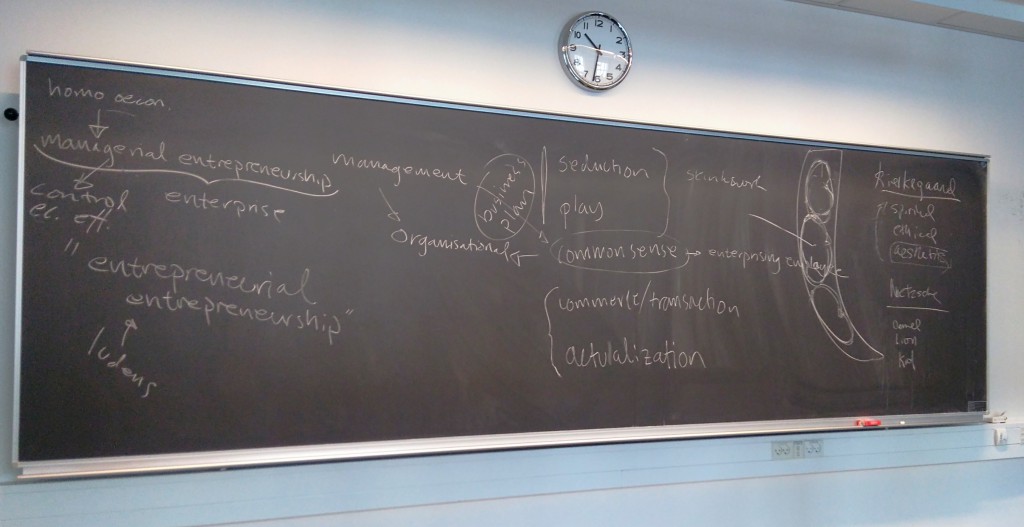 homo oecon.
managerial entrepreneurship
control
ec. eff.
enterprise
"entrepreneurial
entrepreneurship"
ludens
management
organisational
business
plan
seduction
play
common sense
enterprising
commerce/transaction
actulalization
Kierkegaard
ethical
Nietzsche
camel
Lion
Kid
11 12 1 2 3 4 5 6 7 8 9 10